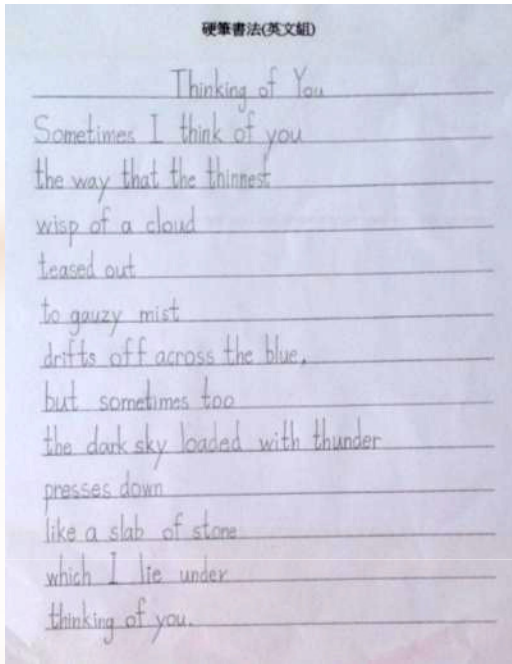 硬筆書法(英文組)
Thinking of You
Sometimes I think of you
the way that the thinnest
wisp of a cloud
teased out
to gauzy mist
drifts off across the blue,
but sometimes too
the dark sky loaded with thunder
presses down
like a slab of stone
which I lie under
thinking of you.